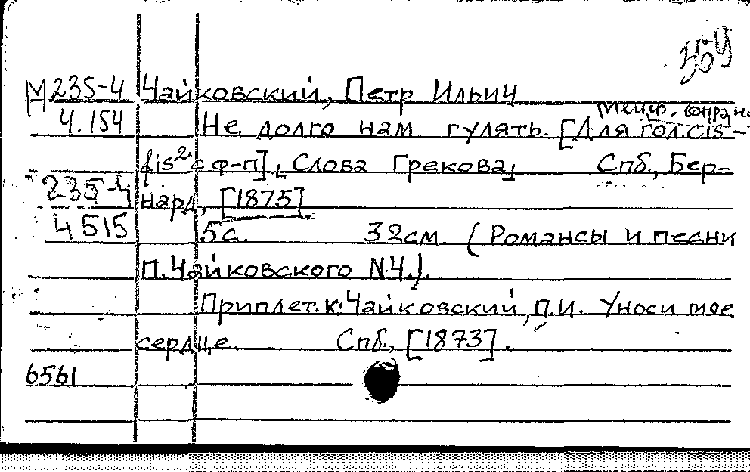 359
М 235-4 Чайковский, Петр Ильич
меццо-сопрано
4.154 Не долго нам гулять. [Для гол. cis-
fis² с ф-п], Слова Грекова, Спб., Бер-
235-4 нард, [1875].
4515 5с. 32см. (Романсы и песни
П. Чайковского N4.).
Приплет. к: Чайковский, П.И. Уноси мое
сердце. Спб., [1873].
6561